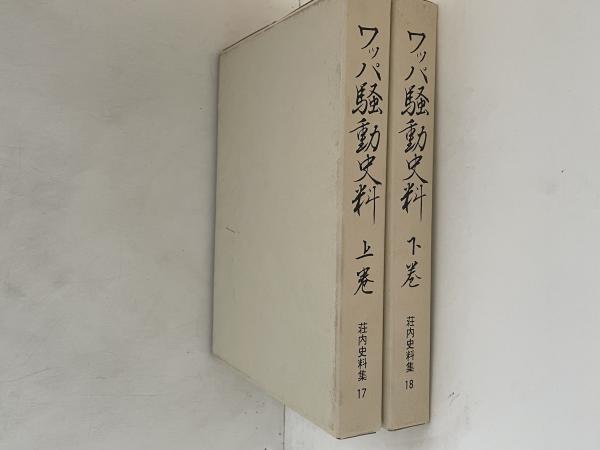 ワッパ騒動史料 上巻
荘内史料集 17
ワッパ騒動史料 下巻
荘内史料集 18